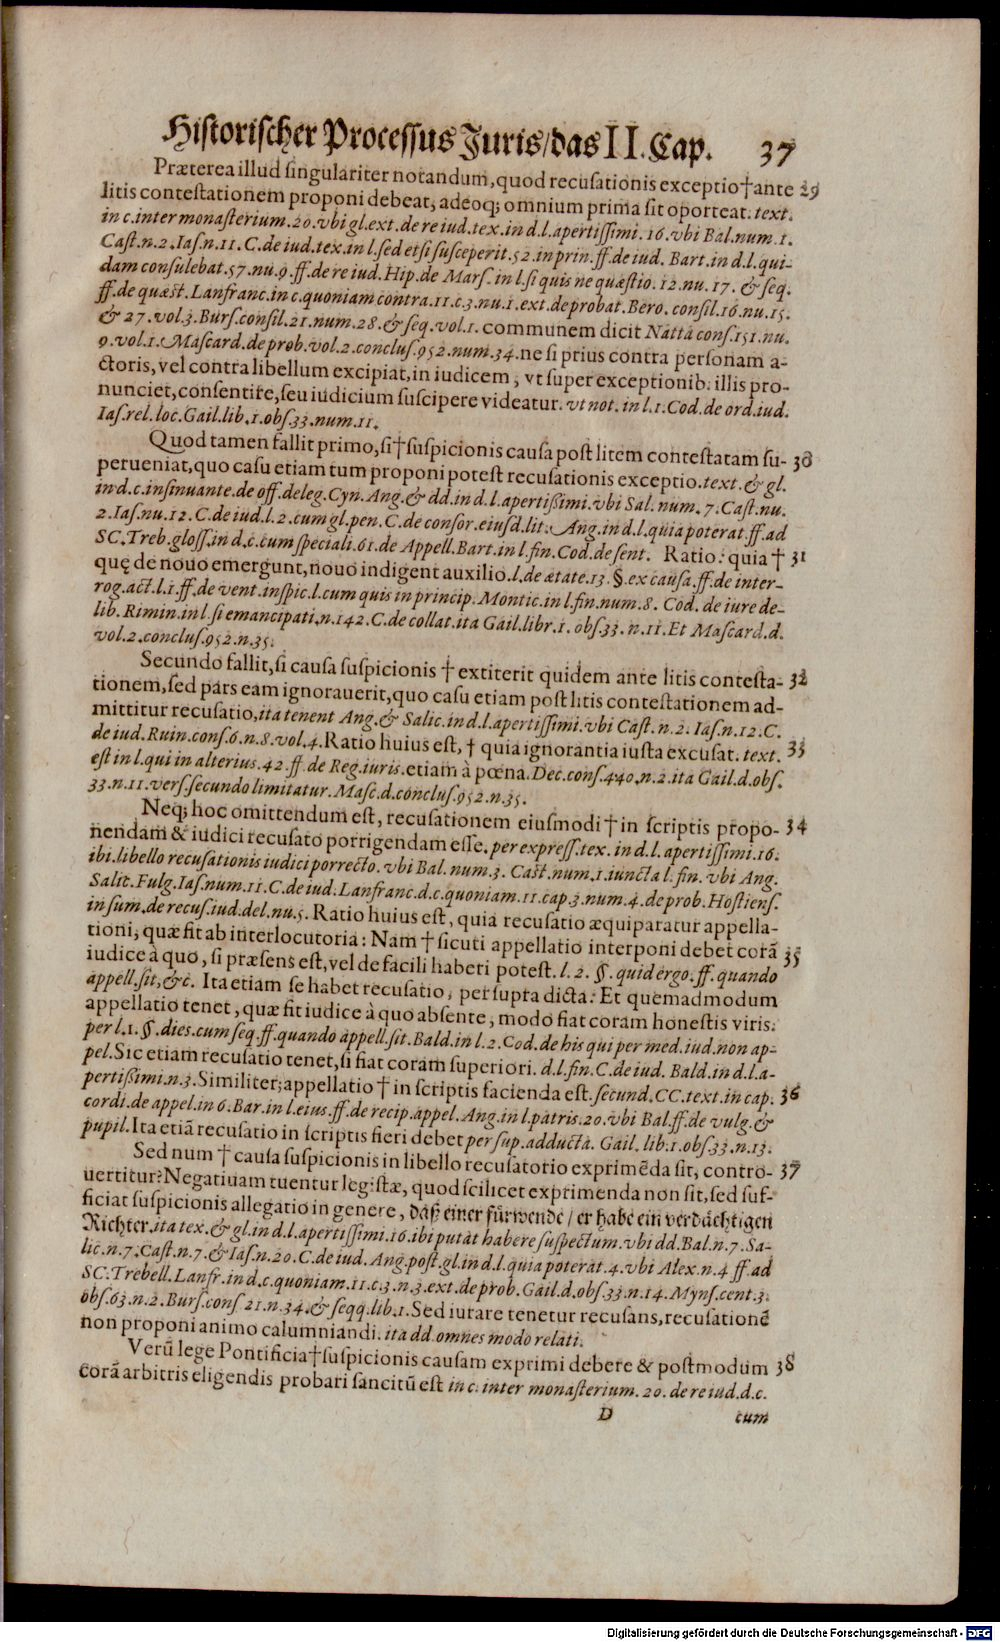 Historischer Processus Juris/das II. Cap. 37
Præterea illud singulariter notandum, quod recusationis exceptio † ante 29
litis contestationem proponi debeat, adeoq; omnium prima sit oporteat. text.
in c. inter monasterium. 20. vbi gl. ext. de re iud. tex. in d. l. apertissimi. 16. vbi Bal. num. 1.
Cast. n. 2. Ias. n. 11. C. de iud. tex. in l. sed etsi susceperit. 52. in prin. ff. de iud. Bart. in d. l. qui-
dam consulebat. 57. nu. 9. ff. de re iud. Hip. de Mars. in l. si quis ne quæstio. 12. nu. 17. & seq.
ff. de quæst. Lanfranc. in c. quoniam contra. 11. c. 3. nu. 1. ext. de probat. Bero. consil. 16. nu. 15.
& 27. vol. 3. Burs. consil. 21. num. 28. & seq. vol. 1. communem dicit Natta cons. 151. nu.
9. vol. 1. Mascard. de prob. vol. 2. conclus. 952. num. 34. ne si prius contra personam a-
ctoris, vel contra libellum excipiat, in iudicem, vt super exceptionib. illis pro-
nunciet, consentire, seu iudicium suscipere videatur. vt not. in l. 1. Cod. de ord. iud.
Ias. rel. loc. Gail. lib. 1. obs. 33. num. 11.
Quod tamen fallit primo, si † suspicionis causa post litem contestatam su- 30
perueniat, quo casu etiam tum proponi potest recusationis exceptio. text. & gl.
in d. c. insinuante. de off. deleg. Cyn. Ang. & dd. in d. l. apertißimi. vbi Sal. num. 7. Cast. nu.
2. Ias. nu. 12. C. de iud. l. 2. cum gl. pen. C. de consor. eiusd. lit. Ang. in d. l. quia poterat. ff. ad
SC. Treb. gloss. in d. c. cum speciali. 61. de Appell. Bart. in l. fin. Cod. de sent. Ratio: quia † 31
quę de nouo emergunt, nouo indigent auxilio. l. de ætate. 13. §. ex causa. ff. de inter-
rog. act. l. 1. ff. de vent. inspic. l. cum quis in princip. Montic. in l. fin. num. 8. Cod. de iure de-
lib. Rimin. in l. si emancipati. n. 142. C. de collat. ita Gail. libr. 1. obs. 33. n. 11. Et Mascard. d.
vol. 2. conclus. 952. n. 35.
Secundo fallit, si causa suspicionis † extiterit quidem ante litis contesta- 32
tionem, sed pars eam ignorauerit, quo casu etiam post litis contestationem ad-
mittitur recusatio, ita tenent Ang. & Salic. in d. l. apertissimi. vbi Cast. n. 2. Ias. n. 12. C.
de iud. Ruin. cons. 6. n. 8. vol. 4. Ratio huius est, † quia ignorantia iusta excusat. text. 33
est in l. qui in alterius. 42. ff. de Reg. iuris. etiam à pœna. Dec. cons. 440. n. 2. ita Gail. d. obs.
33. n. 11. vers. secundo limitatur. Masc. d. conclus. 952. n. 35.
Neq; hoc omittendum est, recusationem eiusmodi † in scriptis propo- 34
nendam & iudici recusato porrigendam esse. per express. tex. in d. l. apertissimi. 16.
ibi. libello recusationis iudici porrecto. vbi Bal. num. 3. Cast. num. 1. iuncta l. fin. vbi Ang.
Salic. Fulg. Ias. num. 11. C. de iud. Lanfranc. d. c. quoniam. 11. cap. 3. num. 4. de prob. Hostiens.
in sum. de recus. iud. del. nu. 5. Ratio huius est, quia recusatio æquiparatur appella-
tioni, quæ fit ab interlocutoria: Nam † sicuti appellatio interponi debet corã 35
iudice à quo, si præsens est, vel de facili haberi potest. l. 2. §. quid ergo. ff. quando
appell. sit, &c. Ita etiam se habet recusatio, per supra dicta: Et quemadmodum
appellatio tenet, quæ fit iudice à quo absente, modo fiat coram honestis viris.
per l. 1. §. dies. cum seq. ff. quando appell. sit. Bald. in l. 2. Cod. de his qui per med. iud. non ap-
pel. Sic etiam recusatio tenet, si fiat coram superiori. d. l. fin. C. de iud. Bald. in d. l. a-
pertißimi. n. 3. Similiter, appellatio † in scriptis facienda est. secund. CC. text. in cap. 36
cordi. de appel. in 6. Bar. in l. eius. ff. de recip. appel. Ang. in l. patris. 20. vbi Bal. ff. de vulg. &
pupil. Ita etiã recusatio in scriptis fieri debet per sup. adducta. Gail. lib. 1. obs. 33. n. 13.
Sed num † causa suspicionis in libello recusatorio exprimẽda sit, contro- 37
uertitur? Negatiuam tuentur legistæ, quod scilicet exprimenda non sit, sed suf-
ficiat suspicionis allegatio in genere, daß einer fürwende/ er habe ein verdächtigen
Richter. ita tex. & gl. in d. l. apertissimi. 16. ibi putat habere suspectum. vbi dd. Bal. n. 7. Sa-
lic. n. 7. Cast. n. 7. & Ias. n. 20. C. de iud. Ang. post. gl. in d. l. quia poterat. 4. vbi Alex. n. 4. ff. ad
SC. Trebell. Lanfr. in d. c. quoniam. 11. c. 3. n. 3. ext. de prob. Gail. d. obs. 33. n. 14. Myns. cent. 3.
obs. 63. n. 2. Burs. cons. 21. n. 34. & seqq. lib. 1. Sed iurare tenetur recusans, recusationẽ
non proponi animo calumniandi. ita dd. omnes modo relati.
Verũ lege Pontificia † suspicionis causam exprimi debere & postmodum 38
corã arbitris eligendis probari sancitũ est in c. inter monasterium. 20. de re iud. d. c.
D cum
Digitalisierung gefördert durch die Deutsche Forschungsgemeinschaft - DFG